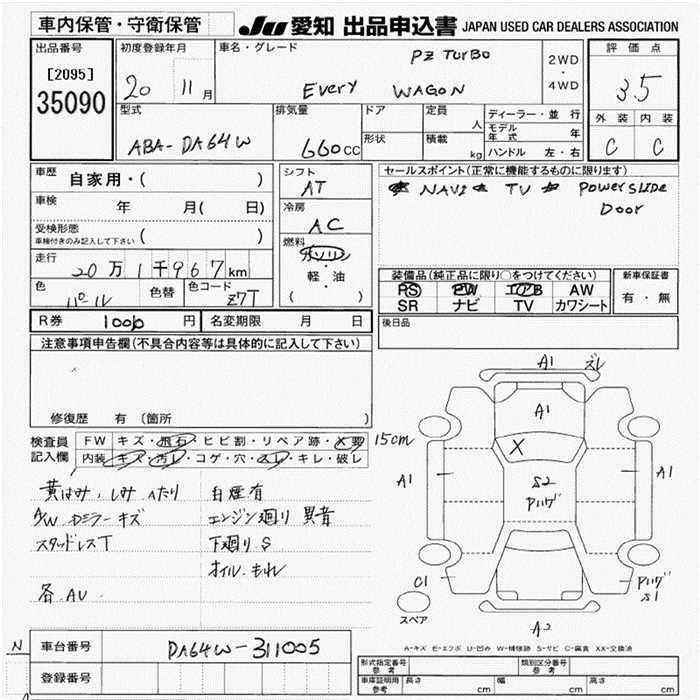 車内保管・守衛保管
JU 愛知 出品申込書 JAPAN USED CAR DEALERS ASSOCIATION
出品番号
[2095]
35090
初度登録年月
20 11月
車名・グレード
PZ TURBO
Every WAGON
2WD
・
4WD
評価点
3.5
外装 内装
C C
型式
ABA-DA64W
排気量
660cc
ドア
形状
定員 人
積載 kg
ディーラー・並行
モデル年式 年
ハンドル 左・右
車歴 自家用・( )
車検 年 月( 日)
受検形態
車検付きのみ記入して下さい ( )
走行 20万1千967km
色 パール 色替 色コード Z7T
シフト
AT
冷房
AC
燃料
ガソリン
・
軽・油
( )
セールスポイント(正常に機能するものに限ります)
NAVI TV POWER SLIDE
Door
装備品(純正品に限り○をつけてください)
PS PW エアB AW
SR ナビ TV カワシート
新車保証書
有・無
R券 10060円 名変期限 月 日
後日品
注意事項申告欄(不具合内容等は具体的に記入して下さい)
修復歴 有 〔箇所 〕
検査員
記入欄
FW キズ・飛石・ヒビ割・リペア跡・X要 15cm
内装 キズ・汚レ・コゲ・穴・スレ・キレ・破レ
黄ばみ,しみ,へたり 白煙有
A/W ドミラーキズ エンジン廻り 異音
スタッドレスT 下廻り S
オイルもれ
各.AU
A1 ズレ
A1
X
A1
A1
S2
Pハゲ
C1
Pハゲ
S1
スペア
A2
A-キズ E-エクボ U-凹み W-補修跡 S-サビ C-腐食 XX-交換済
N
車台番号 DA64W-311005
登録番号
形式指定番号
参考
類別区分番号
参考
車庫証明用
参考
長さ cm 幅 cm 高さ cm